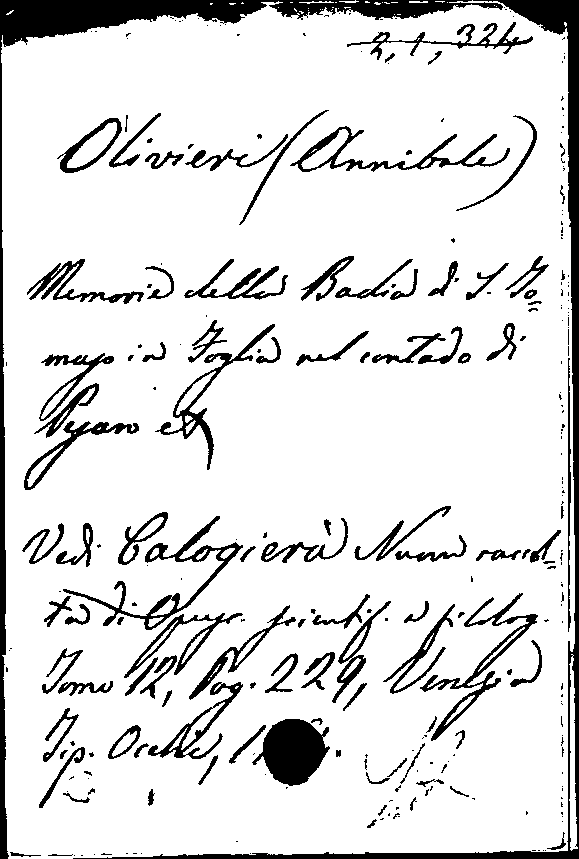 2, 1, 324
Olivieri (Annibale)
Memorie della Badia di S. To=
maso in Foglia nel contado di
Pesaro et
Vedi Calogierà Nuova raccol=
ta di Opusc. scientif. e filolog.
Tomo 12, Pag. 229, Venezia
Tip. Occhi,